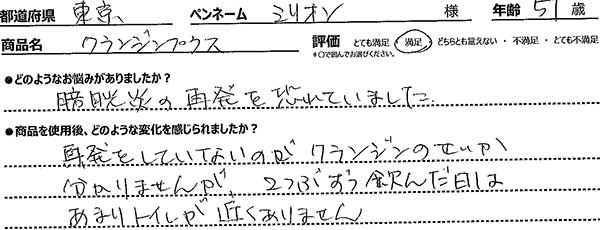 都道府県 東京、 ペンネーム ミリオン 様 年齢 51 歳
商品名 クランジンプラス 評価 とても満足 ・ 満足 ・ どちらとも言えない ・ 不満足 ・ とても不満足
*○で囲んでお選びください。
●どのようなお悩みがありましたか？
膀胱炎の再発を恐れていました
●商品を使用後、どのような変化を感じられましたか？
再発をしていないのがクランジンのせいか
分かりませんが 2つぶずつ飲んだ日は
あまりトイレが近くありません